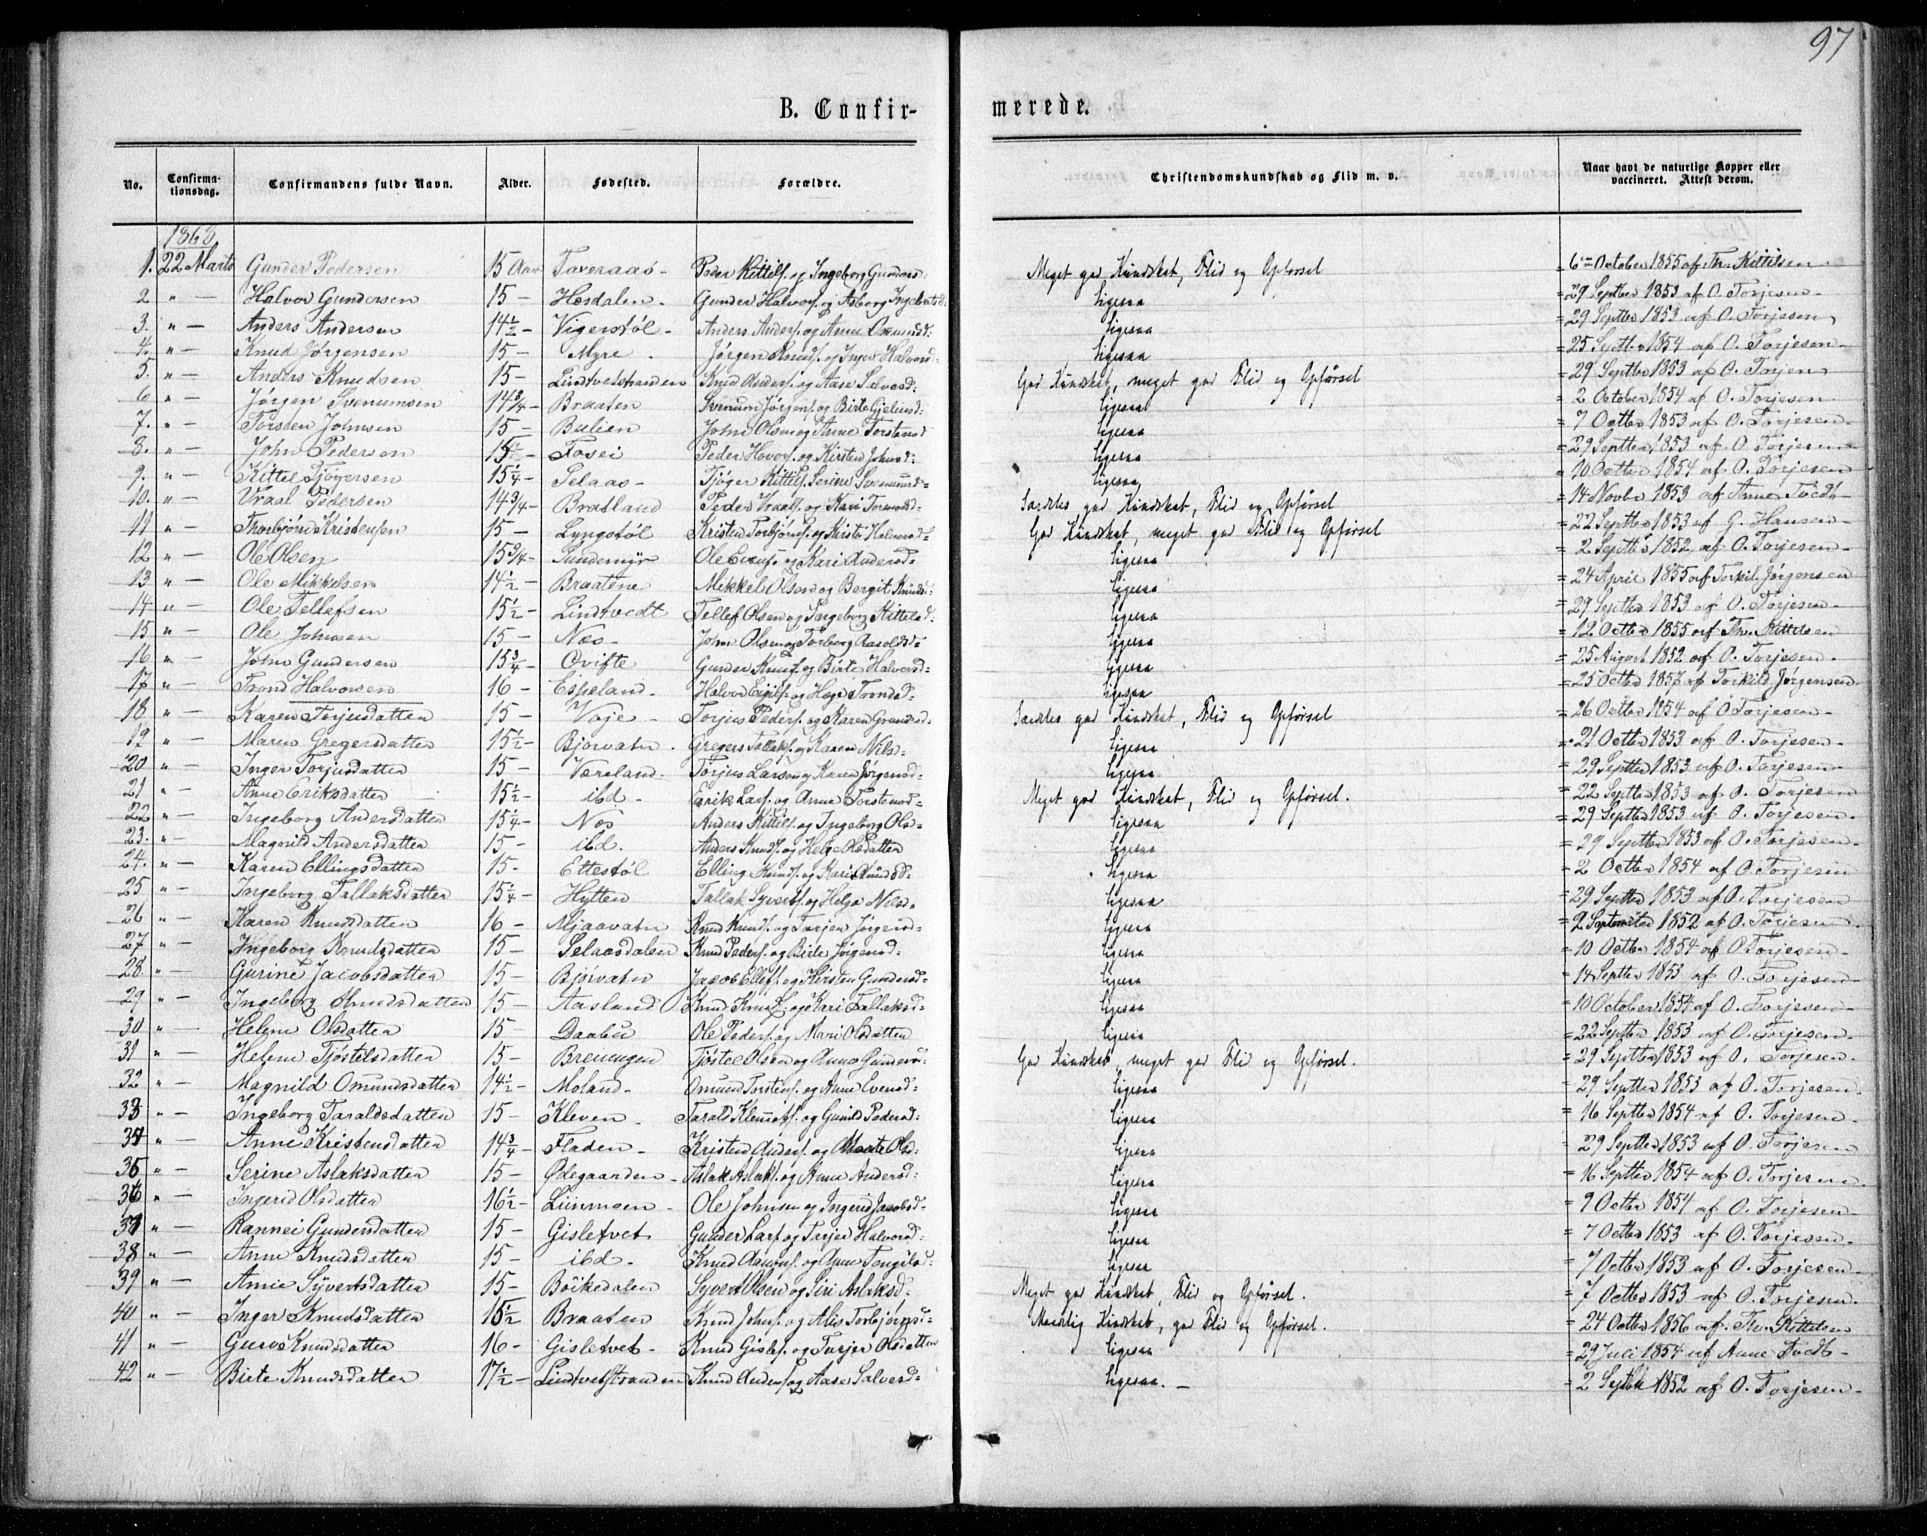 97
B. Confirmerede.
No. Confirmationsdag. Confirmandens fulde Navn. Alder. Fødested. Forældre. Christendomskundskab og Flid m. v. Naar havt de naturlige Kopper eller vaccineret. Attest derom.
1. 22 Marts Gunder Pedersen 15 Aar Taveraas- Peder Kittils. og Ingeborg Gundersd: Meget god Kundskab, Flid og Opførsel = 6te October 1855 af Th. Kittilsen.
2 " — Halvor Gundersen 15 — Hæsdalen. Gunder Halvors. og Asborg Ligesaa = 29 Septbr 1853 af O. Torjesen-
3. " — Anders Andersen 14½ — Vigerstøl - Anders Anders. og Anne Osmundsd. Ligesaa = 29 Septbr 1853 af O. Torjesen,
4. " — Knud Jørgensen 15 — Myre. Jørgen Knuds. og Inger Halvorsd: Ligesaa = 25 Septbr 1854 af O. Torjesen-
5. " — Anders Knudsen 15 — Lindtvedstranden Knud Anders. og Aase Salvesd: God Kundskab, meget god Flid og Opførsel = 29 Septbr 1853 af O. Torjesen
6 " — Jørgen Svenumsen 14¾ — Braaten Svenum Jørgens. og Birte Ligesaa = 2 October 1854 af O. Torjesen.
7. " — Torsten Johnsen 15 — Bulien John Olsen og Anne Torstensd Ligesaa = 7 Octbr 1853 af O. Torjesen
8. " — John Pedersen Fosei Peder og Kirsten Johnsd: Ligesaa = 29 Septbr 1853 af O. Torjesen
9. " — Kittel Tjøgersen 15¼ — Selaas - Tjøger Kittils. Ligesaa = 10 Octbr 1854 af O. Torjesen
10. " — Vraal Pedersen 14¾ — Bradland Peder Vraals. og Kari Tormodsd: Særdeles god Kundskab, Flid og Opførsel = 14 Novbr 1853 af Anne Tvedt-
11 " — Thorbjørn Kristensen 15 — Lyngstøl Kristen Torbjørns. og Kirsti Halvorsd: God Kundskab, meget god Flid og Opførsel = 22 Septbr 1853 af G. Hansen
12 " — Ole Olsen 15¾ — Sundemyr Ole og Kari Andersd: Ligesaa = 2 Septbr 1852 af O. Torjesen
13 " — Ole Mikkelsen 14½ — Braatene Mikkel Olsen og Bergit Knudsd: Ligesaa = 24 April 1855 af Torkil Jørgensen
14 " — Ole Tellefsen 15½ — Lindtvedt Tellef Olsen og Ingeborg Kittelsd. Ligesaa = 29 Septbr 1853 af O. Torjesen-
15 " — Ole Johnsen 15 — Næs- John Olsen og Torborg Aasoldsd: Ligesaa = 12 Octbr 1855 af Th. Kittilsen
16 " — John Gundersen 15¾ — Ovifte Gunder Knuds. og Birte Halvorsd: Ligesaa = 25 August 1852 af O. Torjesen.
17 " — Trond Halvorsen 16 — Espeland. Halvor og Hæge Trondsd- Ligesaa = 25 Octbr 1857 af Torkild Jørgensen
18 " — Karen Torjusdatter 15 — Vaje - Torjus Peders. og Karen Særdeles god Kundskab, Flid og Opførsel = 26 Octbr 1854 af O Torjesen-
19 " — Maren Gregersdatter 15½ — Bjorvatn. Gregers Tallaks. og Karen Nilsd: Ligesaa = 21 Octbr 1853 af O. Torjesen-
20 " — Inger Torjusdatter 15 — Væreland. Torjus Larsen og Karen Jørgensd: Ligesaa = 29 Septbr 1853 af O. Torjesen-
21 " — Anne Eriksdatter 15½ — ibd - Erik Lars. og Anne Torstensd: Meget god Kundskab, Flid og Opførsel. = 22 Septbr 1853 af O. Torjesen
22 " — Ingeborg Andersdatter 15¼ — Næs Anders Kittils. og Ingeborg Olsd- Ligesaa = 29 Septbr 1853 af O. Torjesen-
23. " — Magnild Andersdatter 15 — ibd. Anders Knuds. og Helge Olsdatter Ligesaa = 29 Septbr 1853 af O. Torjesen
24. " — Karen Ellingsdatter 15 - Ettestøl Elling Knuds. og Kari Knudsd- Ligesaa = 2 Octbr 1854 af O. Torjesen
25 " — Ingeborg Tallaksdatter 15¼ — Hytten Tallak Syverts. og Helga Nilsd- Ligesaa = 29 Septbr 1853 af O. Torjesen
26 " — Karen Knudsdatter 16 — Mjaavatn Knud Knuds. og Torjer Jørgensd: Ligesaa = 2 September 1852 af O. Torjesen-
27 " — Ingeborg Knudsdatter 15 — Selaasdalen Knud Peders. og Birte Jørgensd: Ligesaa = 10 Octbr 1854 af O Torjesen-
28 " — Gurine Jacobsdatter 15 — Bjorvatn Jacob Ellefs. og Kirsten Gundersd: Ligesaa = 14 Septbr 1853 af O. Torjesen.
29 " — Ingeborg Knudsdatter 15 — Aasland Knud Knuds. og Kari Tallaksd: Ligesaa = 10 October 1854 af O. Torjesen-
30 " — Helene Olsdatter 15 — Daabu Ole Peders. og Mari Olsdatter Ligesaa = 22 Septbr 1853 af O. Torjesen-
31 " — Helene Tjøstelsdatter 15 — Breungen Tjøstel Olsen og Anna Gundersd: God Kundskab, meget god Flid og Opførsel. = 29 Septbr 1853 af O. Torjesen-
32 " — Magnild Omundsdatter 14½ — Moland- Omund Torstens. og Anne Evensd: Ligesaa = 29 Septbr 1853 af O. Torjesen-
33 " — Ingeborg Taraldsdatter 15 — Kleven - Tarald Klemets. og Gunild Pedersd: Ligesaa = 16 Septbr 1854 af O. Torjesen-
34 " — Anne Kristensdatter 14¾ — Fladen - Kristen Anders. og Marte Olsd: Ligesaa = 29 Septbr 1853 af O. Torjesen
35 " — Serine Aslaksdatter 15 — Ødegaarden- Aslak Aslaks. og Anne Andersd: Ligesaa = 16 Septbr 1854 af O. Torjesen
36 " — Ingerid Olsdatter 16½ — Liinmoen - Ole Johnsen og Ingerid Jacobsd: Ligesaa = 9 Octbr 1854 af O. Torjesen-
37 " — Rannei Gundersdatter 15 — Gisletvet Gunder Lars. og Torjer Halvorsd: Ligesaa = 7 Octbr 1853 af O. Torjesen-
38 " — Anne Knudsdatter 15 — ibd- Knud og Anne Ligesaa = 7 Octbr 1853 af O. Torjesen-
39 " — Anne Syvertsdatter 15 — Böikedalen Syvert Olsen og Siri Aslaksd: Meget god Kundskab, Flid og Opførsel. = 7 Octbr 1853 af O. Torjesen.
40 " — Inger Knudsdatter Braaten Knud Johns. og Alis Torbjørnsd: Maadelig Kundskab, god Flid og Opførsel. = 24 Octbr 1856 af Th. Kittelsen
41 " — Guro Knudsdatter 16 - Gisletvet- Knud Gisles. og Torjer Olsdatter Ligesaa = 29 Juli 1854 af Anne Tvedt-
42 " — Birte Knudsdatter 17½ — Lindtvedstranden Knud Anders. og Aase Salvesd- Ligesaa. - = 2 Septbr 1852 af O. Torjesen-